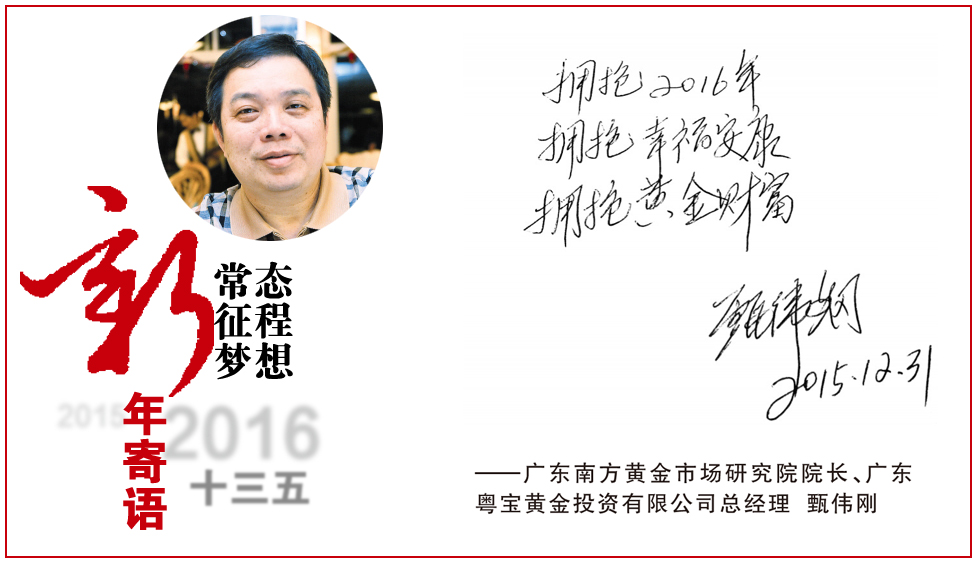 新
常态
征程
梦想
年寄语
2015
2016
十三五
拥抱2016年
拥抱幸福安康
拥抱黄金财富
甄伟刚
2015.12.31
——广东南方黄金市场研究院院长、广东
粤宝黄金投资有限公司总经理 甄伟刚